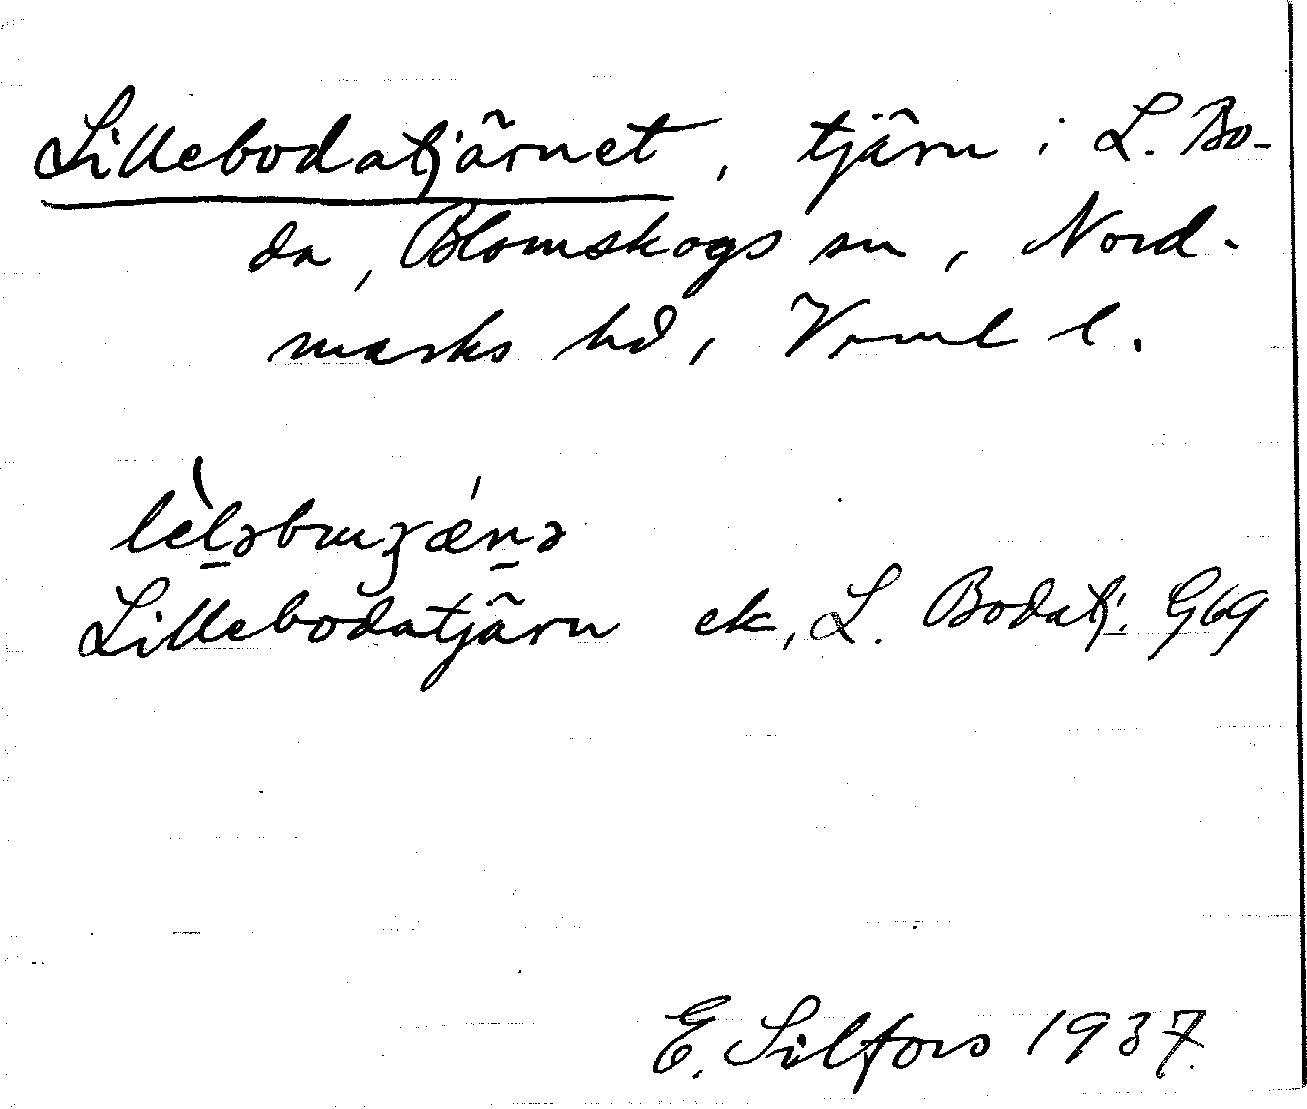 Lillebodatjärnet, tjärn i L. Bo-
da, Blomskogs sn, Nord-
marks hd, Vrml l.
Lillebodatjärn ek, L. Bodatj. G69
E. Silfors 1937.